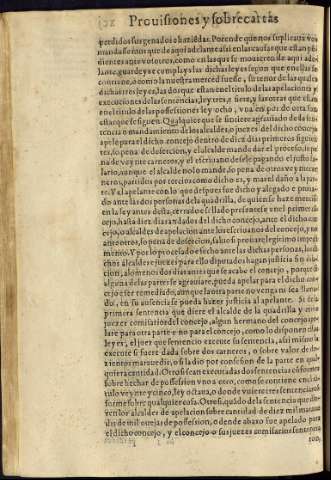 Prouisiones y sobrecartas
perdidos sus ganados o haziẽdas. Por ende que nos suplicaua vos
mandassemos que de aqui adelante assi en las causas que estan pẽ
dientes ante vosotros, como en las que se mouieren de aqui ade
lante, guardeys e cumplays las dichas leyes segun que en ellas se
contiene, o como la nuestra merced fuesse, su tenor de las quales
dichas tres leyes, las dos que estan en el titulo de las apelaciones y
execuciones de las sentencias, ley tres, y siete, y la otra que esta
en el titulo de las possessiones ley ocho, vna en pos de otra son
estas que se siguen. Qualquier que se sintiere agrauiado de la sẽtẽ
tencia o mandamiento de los alcaldes, o juezes del dicho concejo
apele para el dicho concejo dentro de diez dias primeros siguien
tes, so pena de desercion, y el alcalde mande dar el processo, so pe
na de veynte carneros, y el escriuano dele pagando el justo sa
lario, aunque el alcalde no lo mande, so pena de otros veynte car
neros, partidos por tercios como dicho es, y mas el daño a la par
te. Y el apelante con lo que despues fue dicho y alegado y proua
do ante las dos personas dela quadrilla, de quien se haze mencion
en la ley antes desta, cerrado e sellado lo presente en el primer cõ
cejo, hasta diez jornadas del dicho concejo, ante el dicho con
cejo, o alcaldes de apelacion ante los escriuanos del concejo, y no
ante otros, so pena de desercion, saluo si prouare legitimo impedi
mento. Y por lo procesado e fecho ante las dichas personas, los di
chos alcaldes e juezes para ello diputados hagan justicia sin dila
cion, alomenos dos dias antes que se acabe el concejo, porque si
alguna de las partes se agrauiare, pueda apelar para el dicho con
cejo e ser remediado, aunque la otra parte no venga ni sea llama
do, en su ausencia se pueda hazer justicia al apelante. Si de la
primera sentencia que diere el alcalde de la quadrilla y otro
juez e comissario del concejo, algun hermano del concejo ape
lare para otra parte e no para el concejo, como lo disponen dichas
leyes, el juez que sentencio execute su sentencia, assi mismo la
execute si fuere dada sobre dos carneros, o sobre valor de do
zientos marauedis, o si la dio por confesion de la parte en qual
quiera cantidad. Otrosi sean executadas dos sentencias cõformes
sobre hechar de possession vno a otro, como se contiene en el ti
tulo veynte y cinco, ley octaua, o donde vuiere tres sentencias cõ
formes sobre qualquier cosa. Otrosi, quãdo de la sentencia que die
ren los alcaldes de apelacion sobre cantidad de diez mil maraue
dis de mil ouejas de possession, o dende abaxo fue apelado para
el dicho concejo, y el concejo o sus juezes comissarios sentencia
ron,